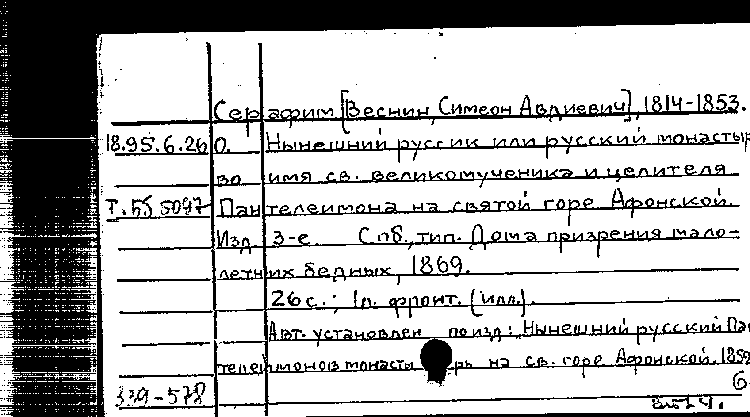 Серафим [Веснин, Симеон Авдиевич], 1814-1853.
18.95.6.260. Нынешний руссик или русский монастыр
во имя св. великомученика и целителя
Т.55 5097 Пантелеимона на святой горе Афонской.
Изд. 3-е Спб, тип. Дома призрения мало-
летних бедных, 1869.
26 с.; 1 л. фронт. (илл.).
Авт. установлен по изд: Нынешний русский Пан
телеимонов монастырь на св. горе Афонской. 1859
6
339-578